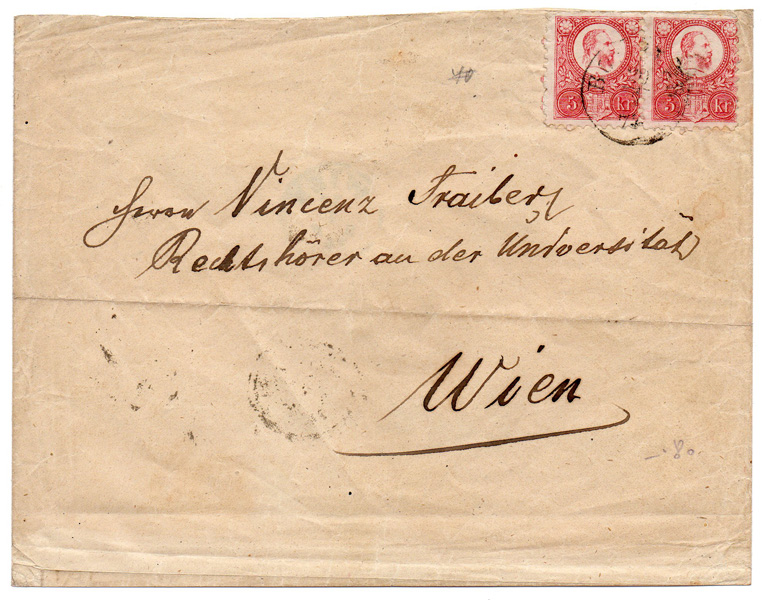 5 Kr 5 Kr
Herrn Vincenz Traiber
Rechtshörer an der Universität
Wien